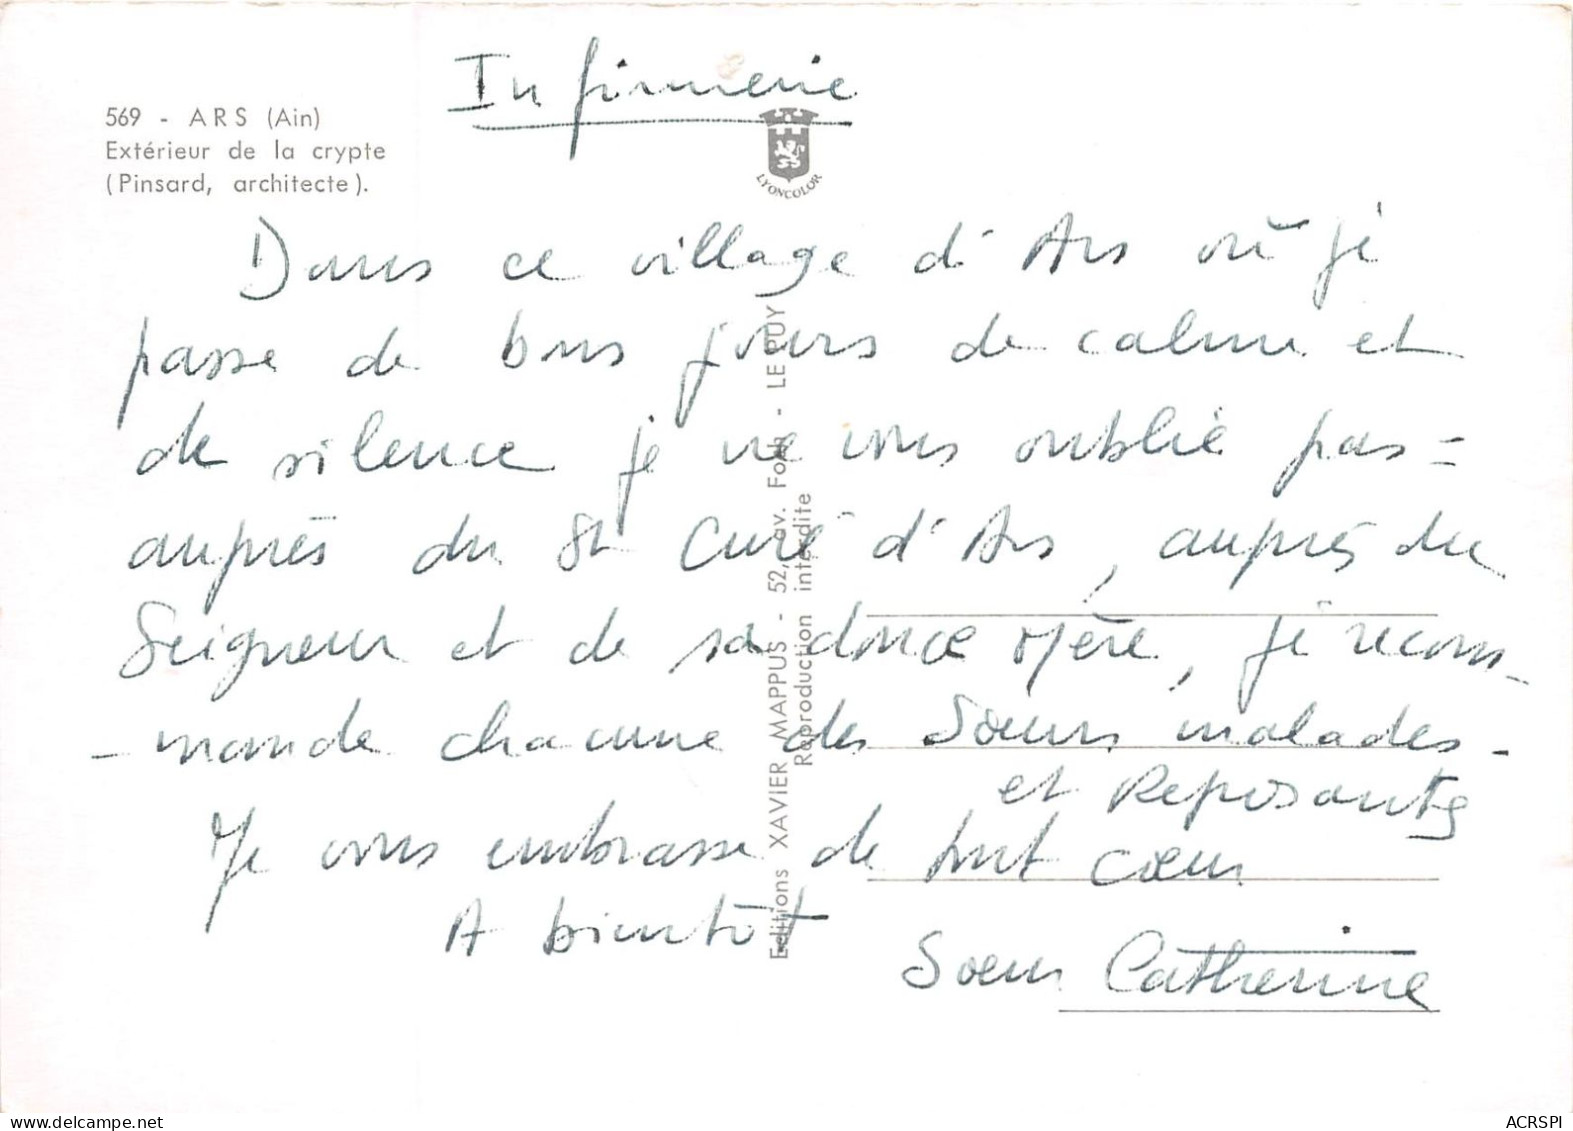 Infirmerie
569 - ARS (Ain)
Extérieur de la crypte
(Pinsard, architecte).
LYONCOLOR
Dans ce village d'Ars où je
passe de bons jours de calme et
de silence je ne vous oublie pas =
auprès du St Curé d'Ars, auprès du
Seigneur et de sa douce Mère, je recom-
-mande chacune des Soeurs malades-
et Reposantes
Je vous embrasse de tout coeur
A bientôt
Soeur Catherine
Editions XAVIER MAPPUS - 52, av. Foch - LE PUY
Reproduction interdite
ACRSPI